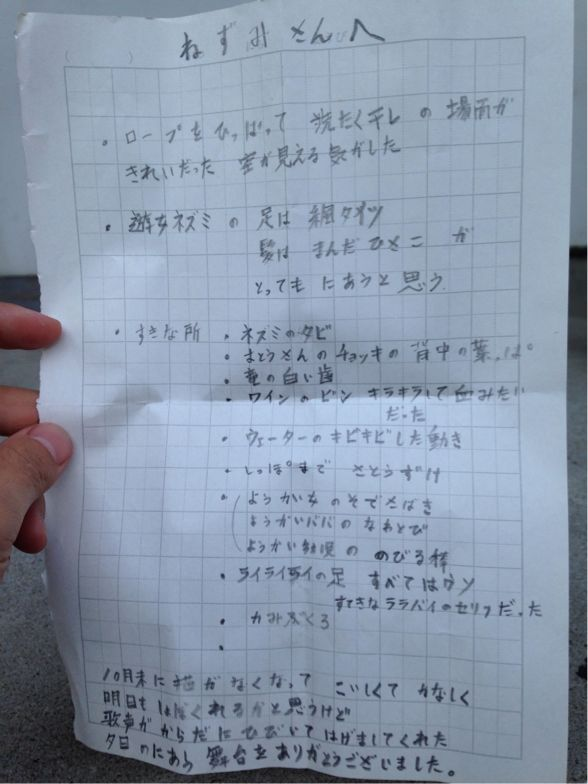 ねずみさんへ
・ロープをひっぱって 洗たく干しの場面が
きれいだった 空が見える気がした
・遊女ネズミの足は 網タイツ
髪は まんだひさこ が
とっても にあうと思う
・すきな所 ・ネズミのタビ
・まとうさんのチョッキの背中の葉っぱ
・竜の白い歯
・ワインのビン キラキラして血みたい
だった
・ウェーターのキビキビした動き
・しっぽまで さとうずけ
・ようかい女のそでさばき
ようかいババのなわとび
ようかい幼児の のびる棒
・ライライライの足 すべてはウソ
すてきなララバイのセリフだった
・かみぶくろ
・
10月末に がなくなって こいしくて かなしく
明日も しばくれるかと思うけど
歌声が からだに ひびいて はげましてくれた
夕日のにあう 舞台を ありがとうございました。